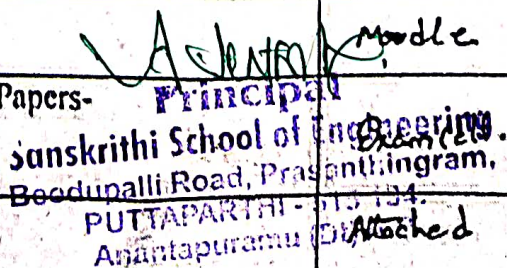 Moodle
Papers-
Principal
Sanskrithi School of Engineering
Exam cell.
Beedupalli Road, Prasanthinigram,
PUTTAPARTHI - 515 134.
Anantapuramu (Dt)
Attached